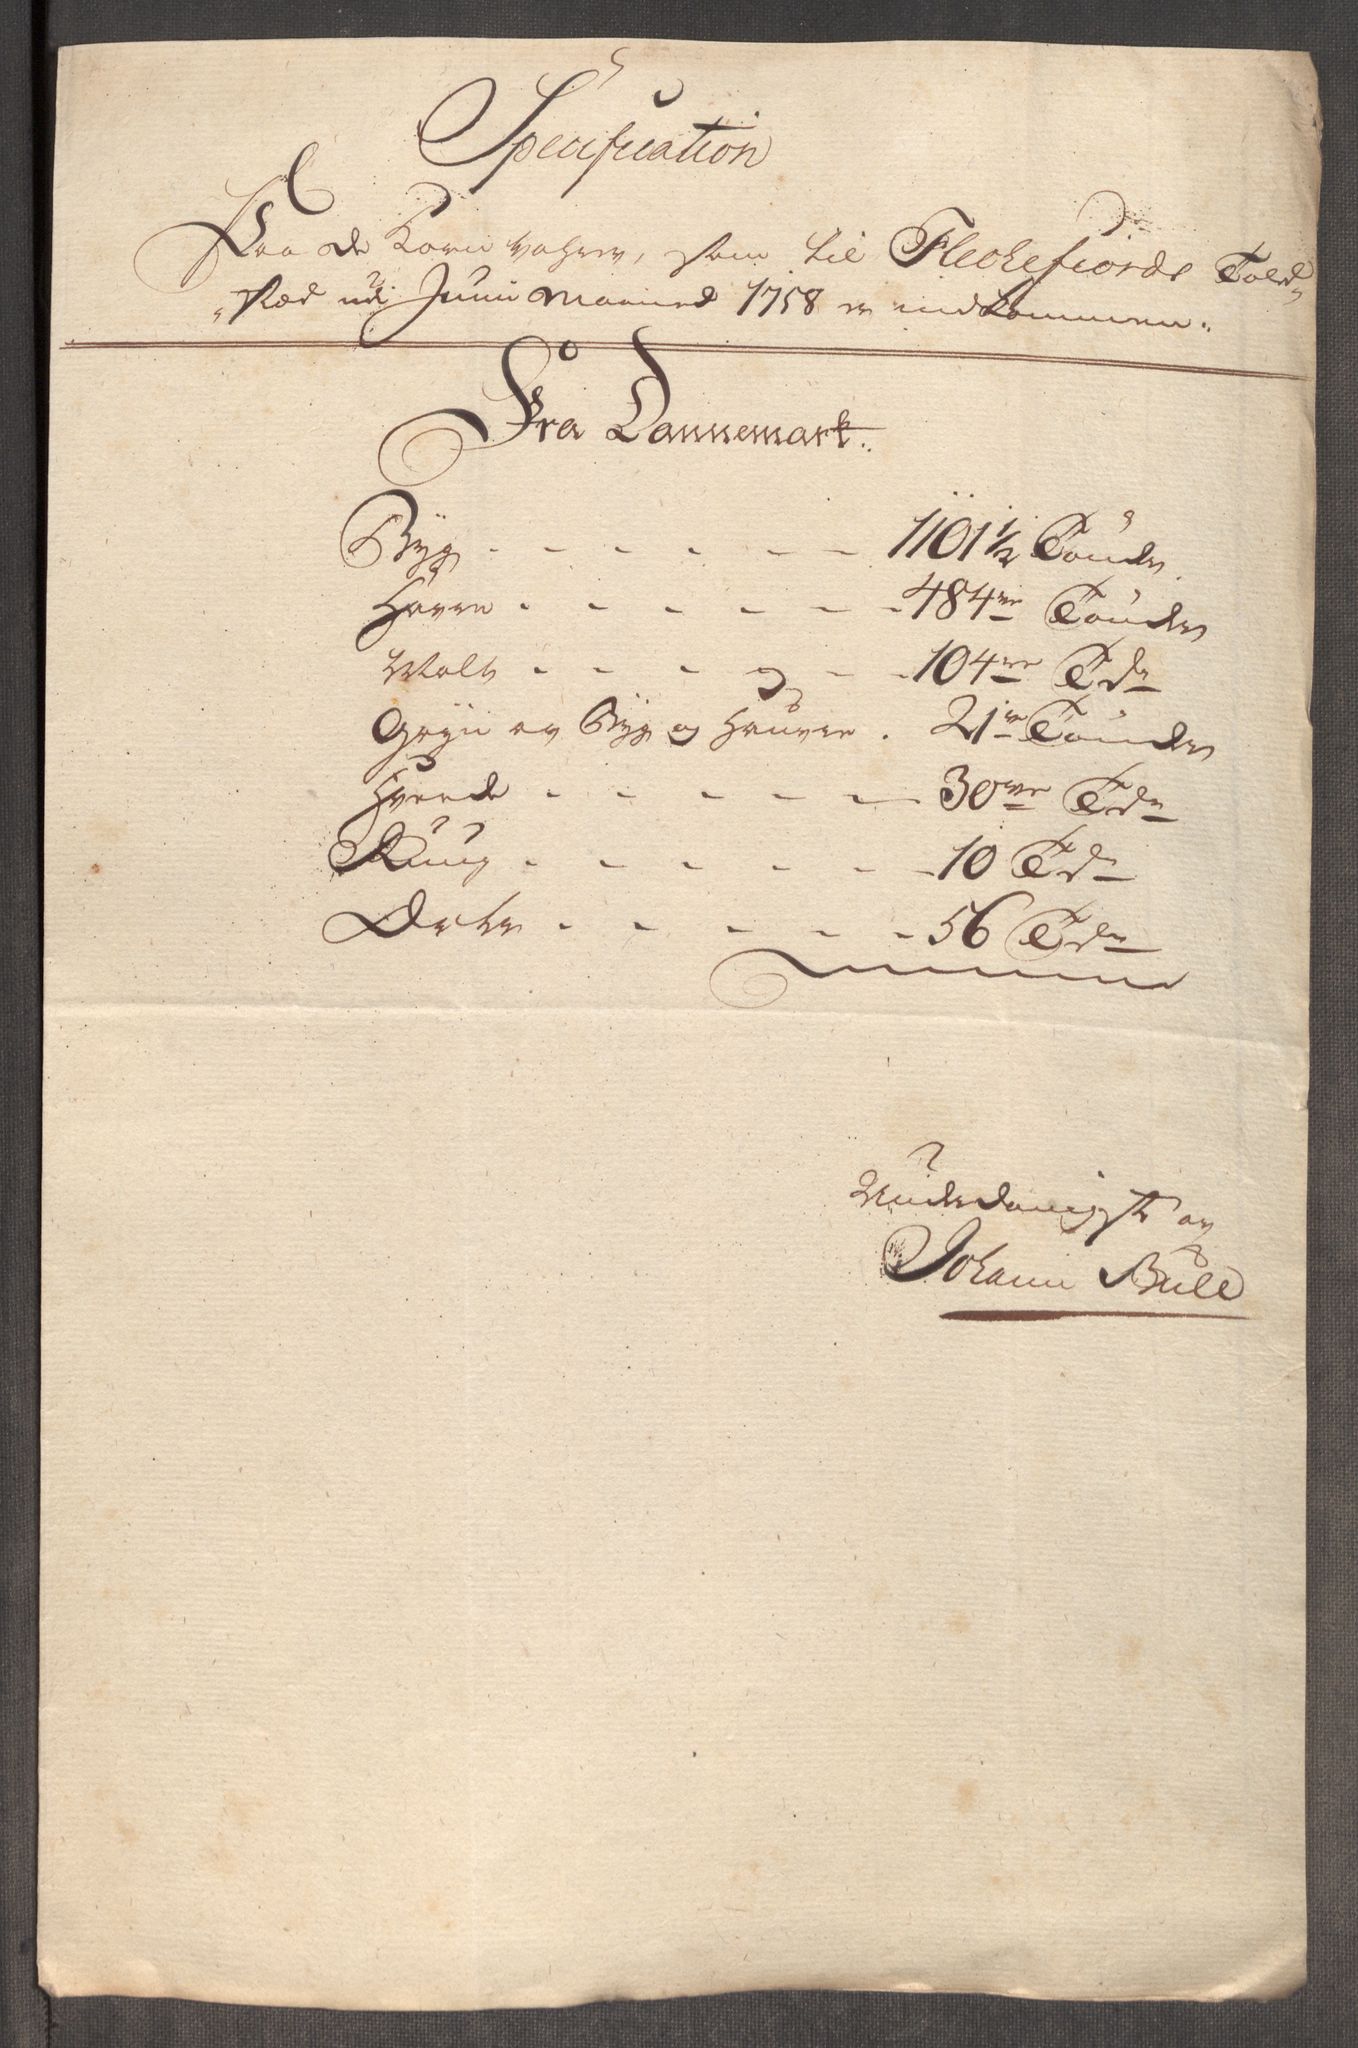 Specification
Paa de Korn vahrer, som til Fleckefiords Told-
"stæd udi Junii Maaned 1758 er indkommen.
Fra Dannemark.
Byg - - - - - - 1101 1/2 Tönder.
Havre - - - - - - 484re Tönder
Malt - - - - - - 104re Tdr
Gryn av Byg og Haufre . 21re Tönder
Hvede - - - - - 30ve Tdr
Rüug - - - - - - 10 Tdr
Erter - - - - - 56 Tdr
Underdanigst av
Johann Bull